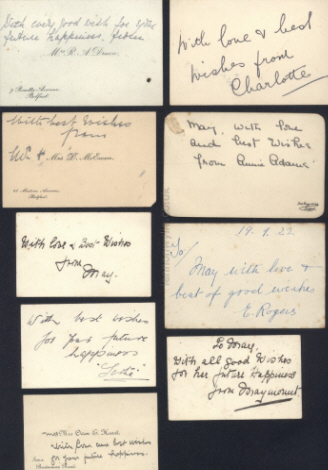 With every good wish for your
future happiness, from
Mrs R. A
Belfast
With Best Wishes
from
Mr & Mrs
Belfast
With love & Best Wishes
from
May.
With best wishes
for her future
happiness
With love and best wishes
for your future happiness.
With love & best
wishes from
Charlotte
May, with love
and best wishes
from Annie Adams
19.9.22.
To/
May with love &
best of good wishes
E. Rogers
To May,
With all good wishes
for her future happiness
from Maymount.